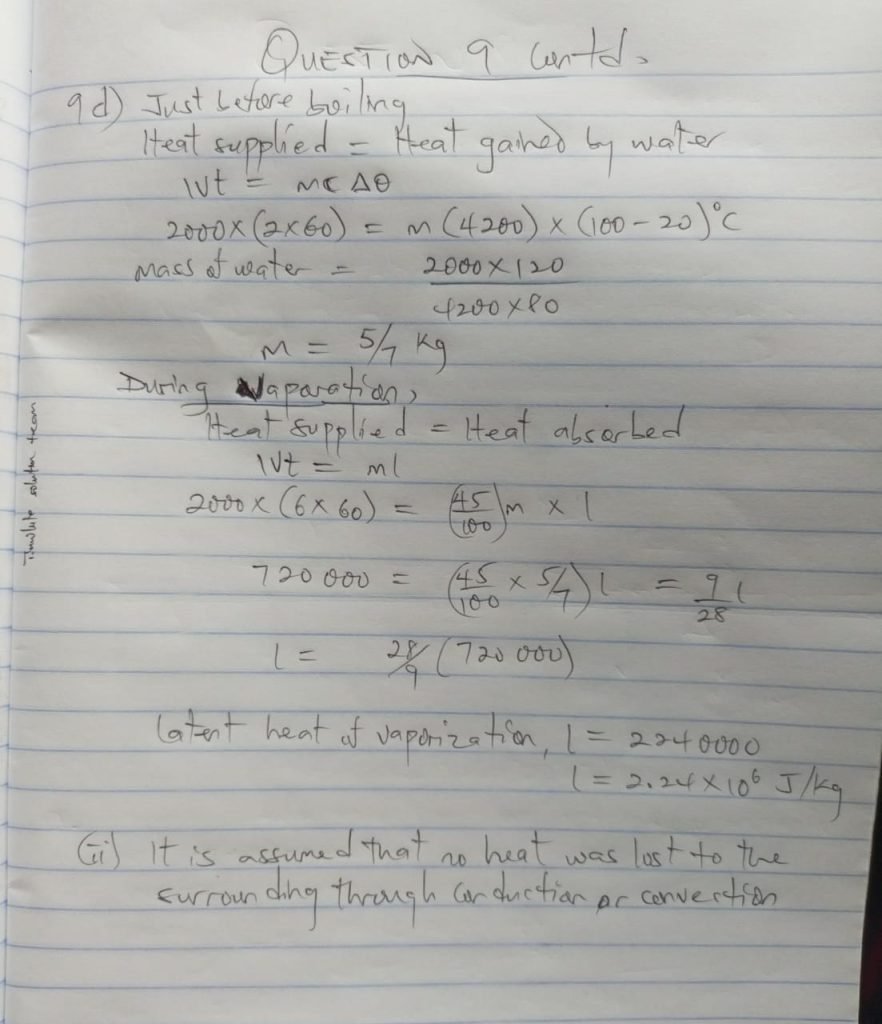 QUESTION 9 contd.
9d) Just before boiling
Heat supplied = Heat gained by water
IVt = MC Δθ
2000 x (2x60) = m (4200) x (100 - 20)°C
Mass of water = 2000 x 120
4200 x 80
M = 5/7 kg
During Vaporation,
Heat supplied = Heat absorbed
IVt = ml
2000 x (6 x 60) = (45/100)m x l
720 000 = (45/100 x 5/7) l = 9/28 l
l = 28/9 (720 000)
Latent heat of vaporization, l = 2240000
l = 2.24 x 10⁶ J/kg
(ii) It is assumed that no heat was lost to the
surrounding through conduction or convection